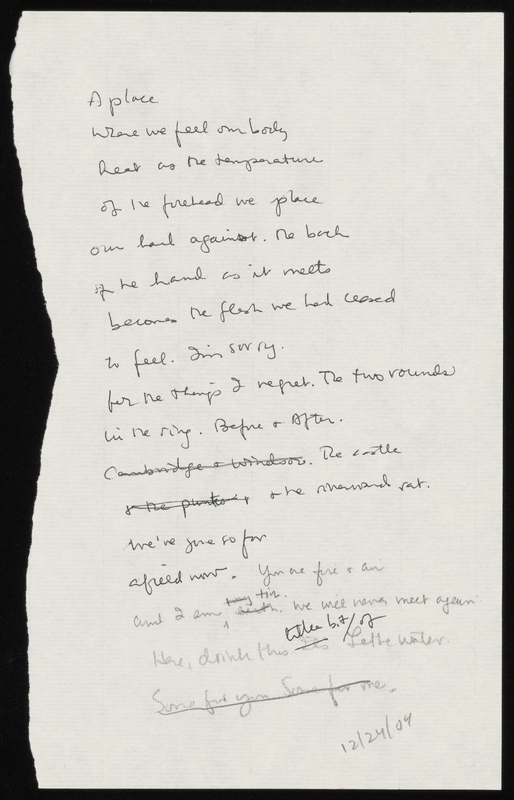 A place
Where we feel our body
heat as the temperature
of the forehead we place
our hand against. The back
of the hand as it meets
becomes the flesh we had ceased
to feel. I'm sorry.
for the things I regret. The two rounds
in the ring. Before & After.
Cambridge & Windsor. The castle
& the punts, & the
we've gone so far
afield now. You are fire & air
and I am tin. we will never meet again
earth.
little bit/of
Here, drink this Lethe water.
Some for you Some for me.
12/24/04